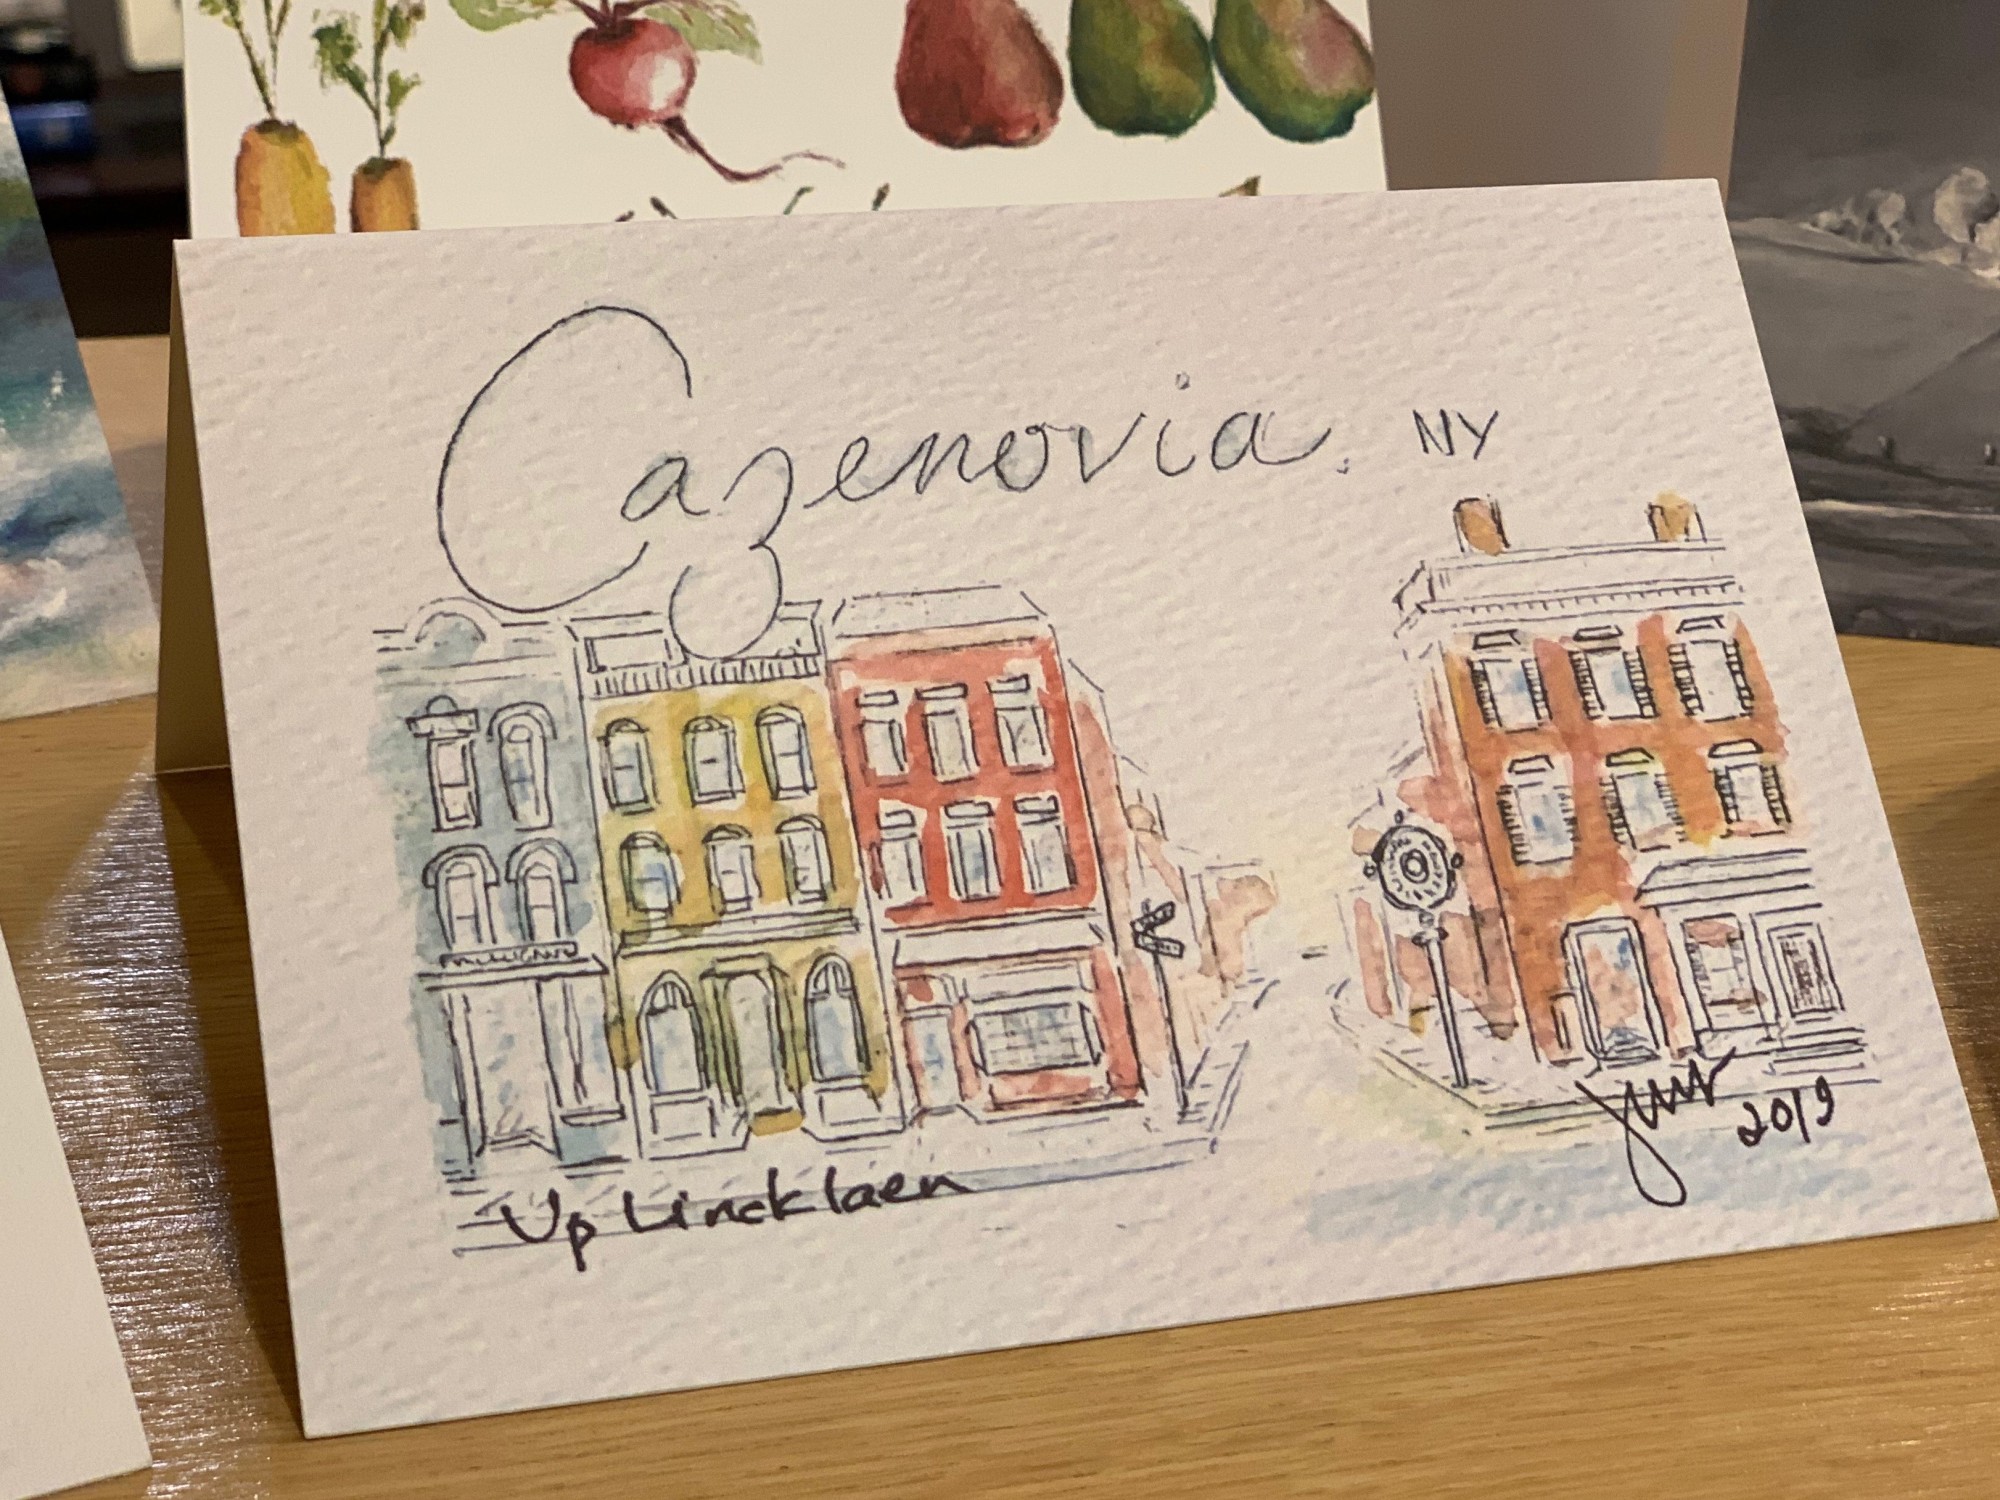 Cazenovia, NY
Up Lincklaen
2019